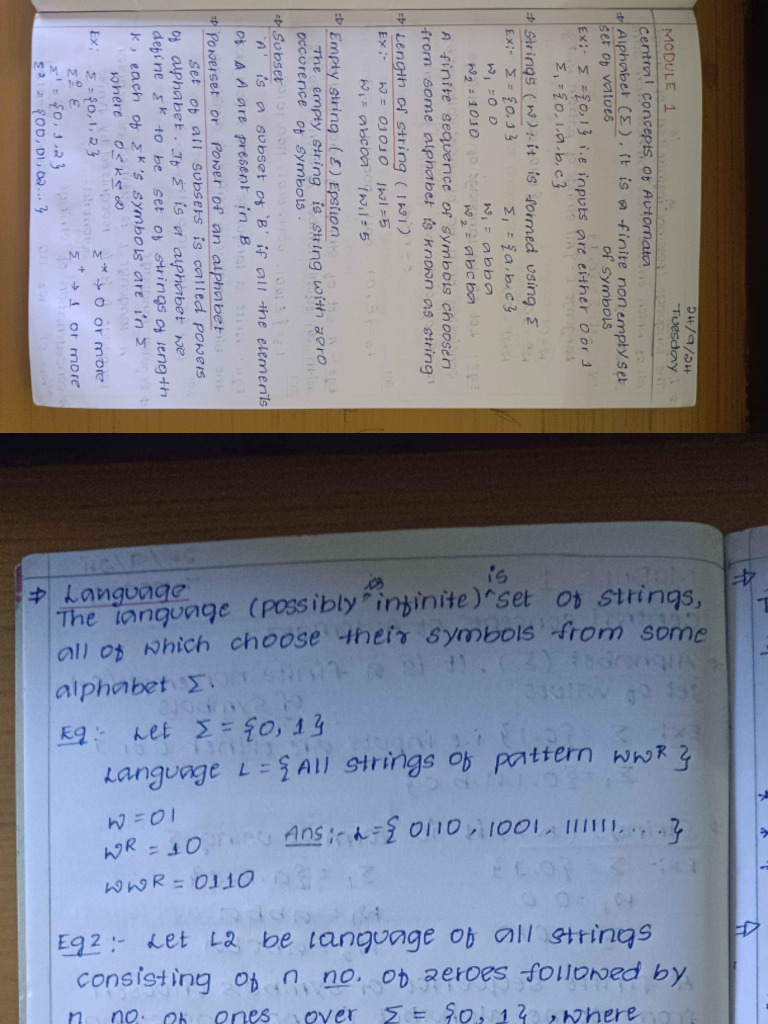 24/9/24
Tuesday
MODULE 1
Central concepts of Automata
⇒ Alphabet (Σ), it is a finite non empty set
set of values of symbols
Ex:- Σ = {0,1} i.e inputs are either 0 or 1
Σ₁ = {0,1,a,b,c}
⇒ Strings (w): it is formed using Σ
Ex:- Σ = {0,1} Σ₁ = {a,b,c}
w₁ = 00 w₁ = abba
w₂ = 1010 w₂ = abcba
A finite sequence of symbols choosen
from some alphabet is known as string
⇒ Length of string (|w|)
Ex:- w = 01010 |w| = 5
w₁ = abcba |w₁| = 5
⇒ Empty string (ε) Epsilon
The empty string is string with zero
occurence of symbols.
⇒ Subset
'A' is a subset of 'B' if all the elements
of A are present in B
⇒ Powerset or Power of an alphabet
Set of all subsets is called powers
of alphabet. If Σ is a alphabet we
define Σᵏ to be set of strings of length
k, each of Σᵏ's symbols are in Σ
where 0≤k≤∞
Ex: Σ = {0,1,2} Σ* → 0 or more
Σ⁰ = ε Σ⁺ → 1 or more
Σ¹ = {0,1,2}
Σ² = {00,01,02...}
⇒ Language
The language (possibly is infinite) is set of strings,
all of which choose their symbols from some
alphabet Σ.
Eg:- Let Σ = {0,1}
Language L = {All strings of pattern wwᴿ}
w = 01
wᴿ = 10 Ans:- L = {0110, 11001, 111111.....}
wwᴿ = 0110
Eg2:- Let L2 be language of all strings
consisting of n no. of zeroes followed by
n no. of ones over Σ = {0,1}, where